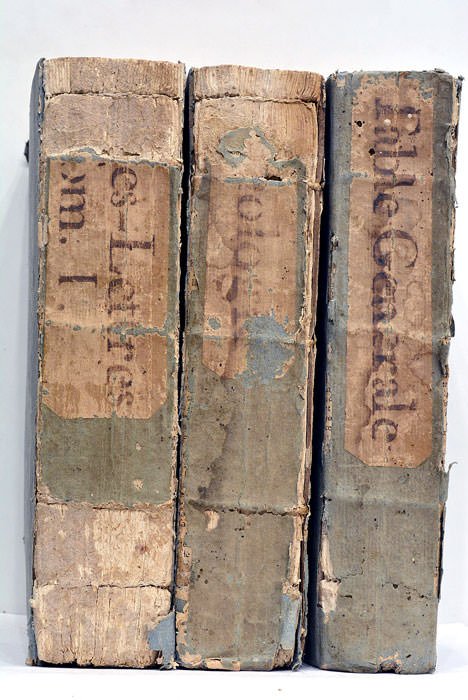 es-Letres
om. I.
olog
Table Generale